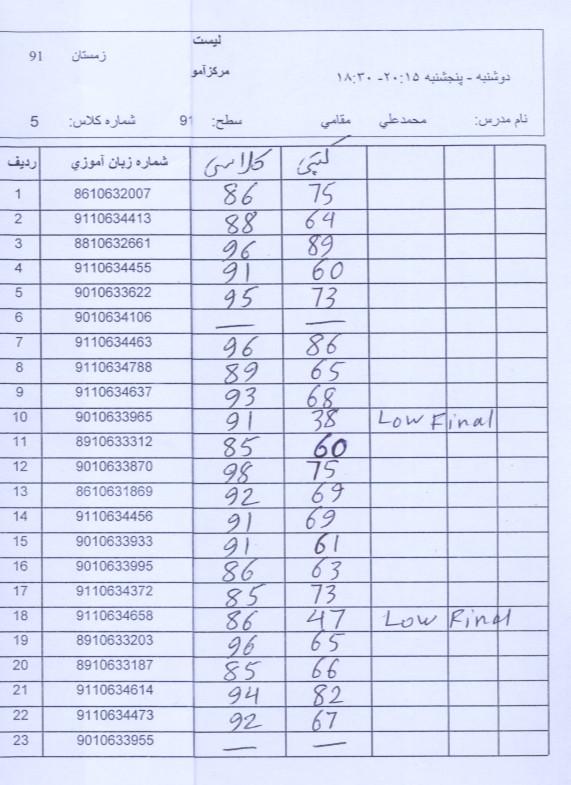 ليست
زمستان 91
مركز آمو
دوشنبه - پنجشنبه ۲۰:۱۵ - ۱۸:۳۰
نام مدرس: محمدعلي مقامي سطح: 91 شماره كلاس: 5
رديف شماره زبان آموزي كلاسي كتبي
1 8610632007 86 75
2 9110634413 88 64
3 8810632661 96 89
4 9110634455 91 60
5 9010633622 95 73
6 9010634106 — —
7 9110634463 96 86
8 9110634788 89 65
9 9110634637 93 68
10 9010633965 91 38 Low Final
11 8910633312 85 60
12 9010633870 98 75
13 8610631869 92 69
14 9110634456 91 69
15 9010633933 91 61
16 9010633995 86 63
17 9110634372 85 73
18 9110634658 86 47 Low Final
19 8910633203 96 65
20 8910633187 85 66
21 9110634614 94 82
22 9110634473 92 67
23 9010633955 — —